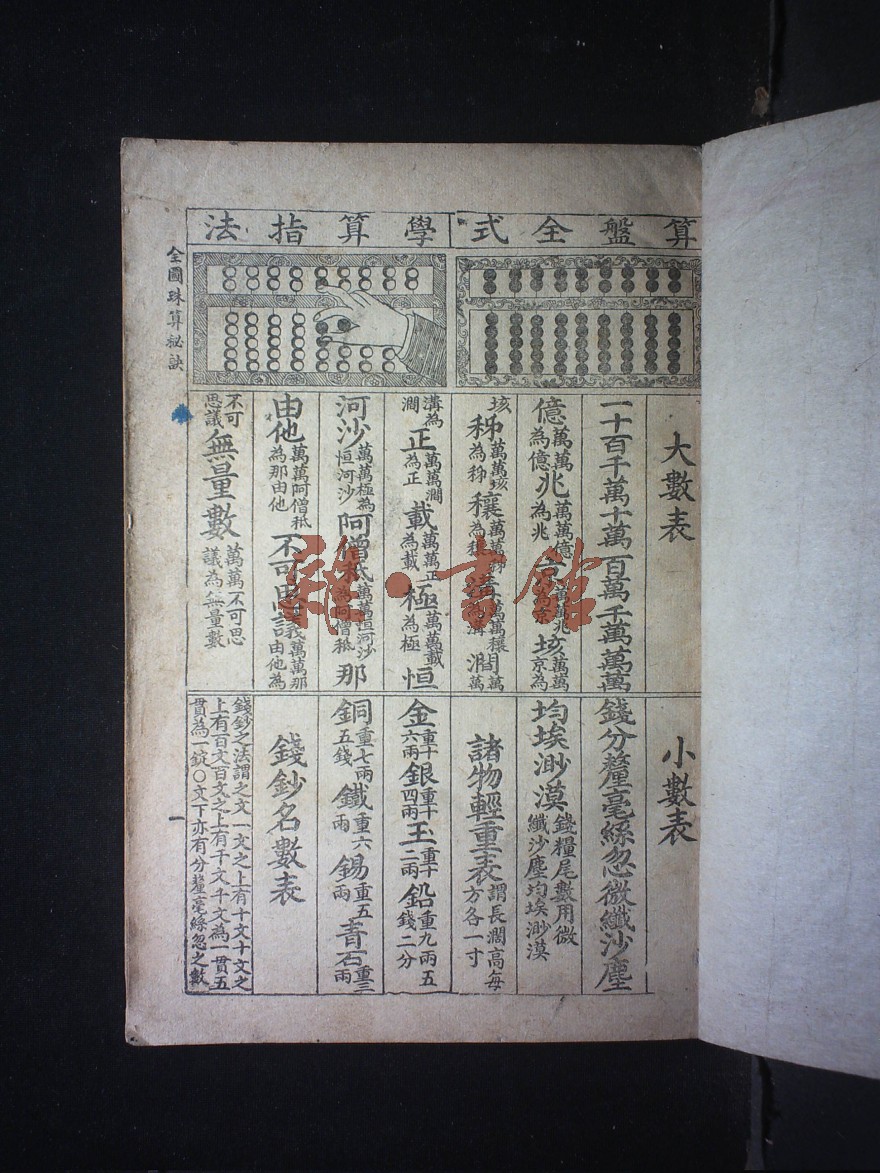 算盤全式
學算指法
全圖珠算秘訣
大數表
一十百千萬十萬百萬千萬萬萬
億萬萬為億兆萬萬億為兆京萬萬兆為京垓萬萬京為
垓秭萬萬垓為秭穰萬萬秭為穰溝萬萬穰為溝澗萬萬
溝為澗正萬萬澗為正載萬萬正為載極萬萬載為極恒
河沙萬萬極為恒河沙阿僧秪萬萬恒河沙為阿僧秪那
由他萬萬阿僧秪為那由他不可思議萬萬那由他為
不可思議無量數萬萬不可思議為無量數
小數表
錢分釐毫絲忽微纖沙塵
均埃渺漠錢糧尾數用微纖沙塵均埃渺漠
諸物輕重表謂長濶高每方各一寸
金重十六兩銀重十四兩玉重十二兩鉛重九兩五錢二分
銅重七兩五錢鐵重六兩錫重五兩青石重三兩
錢鈔名數表
錢鈔之法謂之文一文之上有十文十文之
上有百文百文之上有千文千文為一貫五
貫為一錠〇文下亦有分釐毫絲忽之數
一
雜·書館